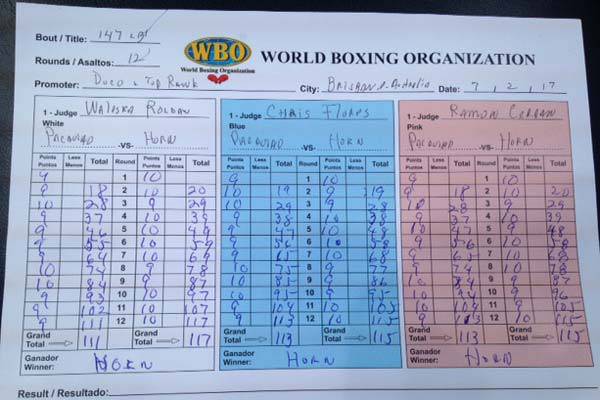 Bout / Title: 147 LB
Rounds / Asaltos: 12
WBO
World Boxing Organization
WORLD BOXING ORGANIZATION
Promoter: Duco & Top Rank City: Date: 7, 2, 17
1 - Judge Waleska Roldan
White
Pacquiao -vs- Horn
Points Puntos Less Menos Total Round Points Puntos Less Menos Total
9 1 10
9 18 2 10 20
10 28 3 9 29
9 37 4 10 39
9 46 5 10 49
9 55 6 10 59
9 64 7 10 69
10 74 8 9 78
10 84 9 9 87
9 93 10 10 97
9 102 11 10 107
9 111 12 10 117
Grand Total 111 Grand Total 117
Ganador Winner: HORN
1 - Judge Chris Flores
Blue
Pacquiao -vs- Horn
Points Puntos Less Menos Total Round Points Puntos Less Menos Total
9 1 10
10 19 2 9 19
10 29 3 9 28
9 38 4 10 38
9 47 5 10 48
9 56 6 10 58
9 65 7 10 68
10 75 8 9 77
10 85 9 9 86
10 95 10 9 95
9 104 11 10 105
9 113 12 10 115
Grand Total 113 Grand Total 115
Ganador Winner: HORN
1 - Judge Ramon Cerdan
Pink
Pacquiao -vs- Horn
Points Puntos Less Menos Total Round Points Puntos Less Menos Total
9 1 10
9 18 2 10 20
10 28 3 9 29
9 37 4 10 39
10 47 5 9 48
9 56 6 10 58
9 65 7 10 68
9 74 8 10 78
10 84 9 9 87
10 94 10 9 96
10 104 11 9 105
9 113 12 10 115
Grand Total 113 Grand Total 115
Ganador Winner: HORN
Result / Resultado: